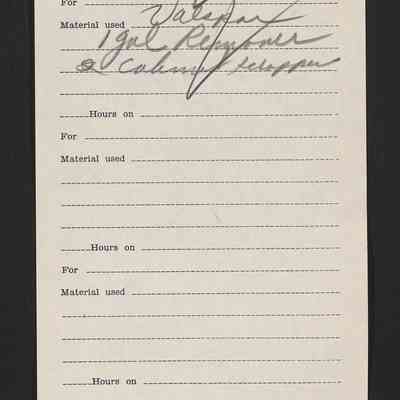 For
Material used Valspar
1 gal Remover
2 Cabinet scrapper
Hours on
For
Material used
Hours on
For
Material used
Hours on